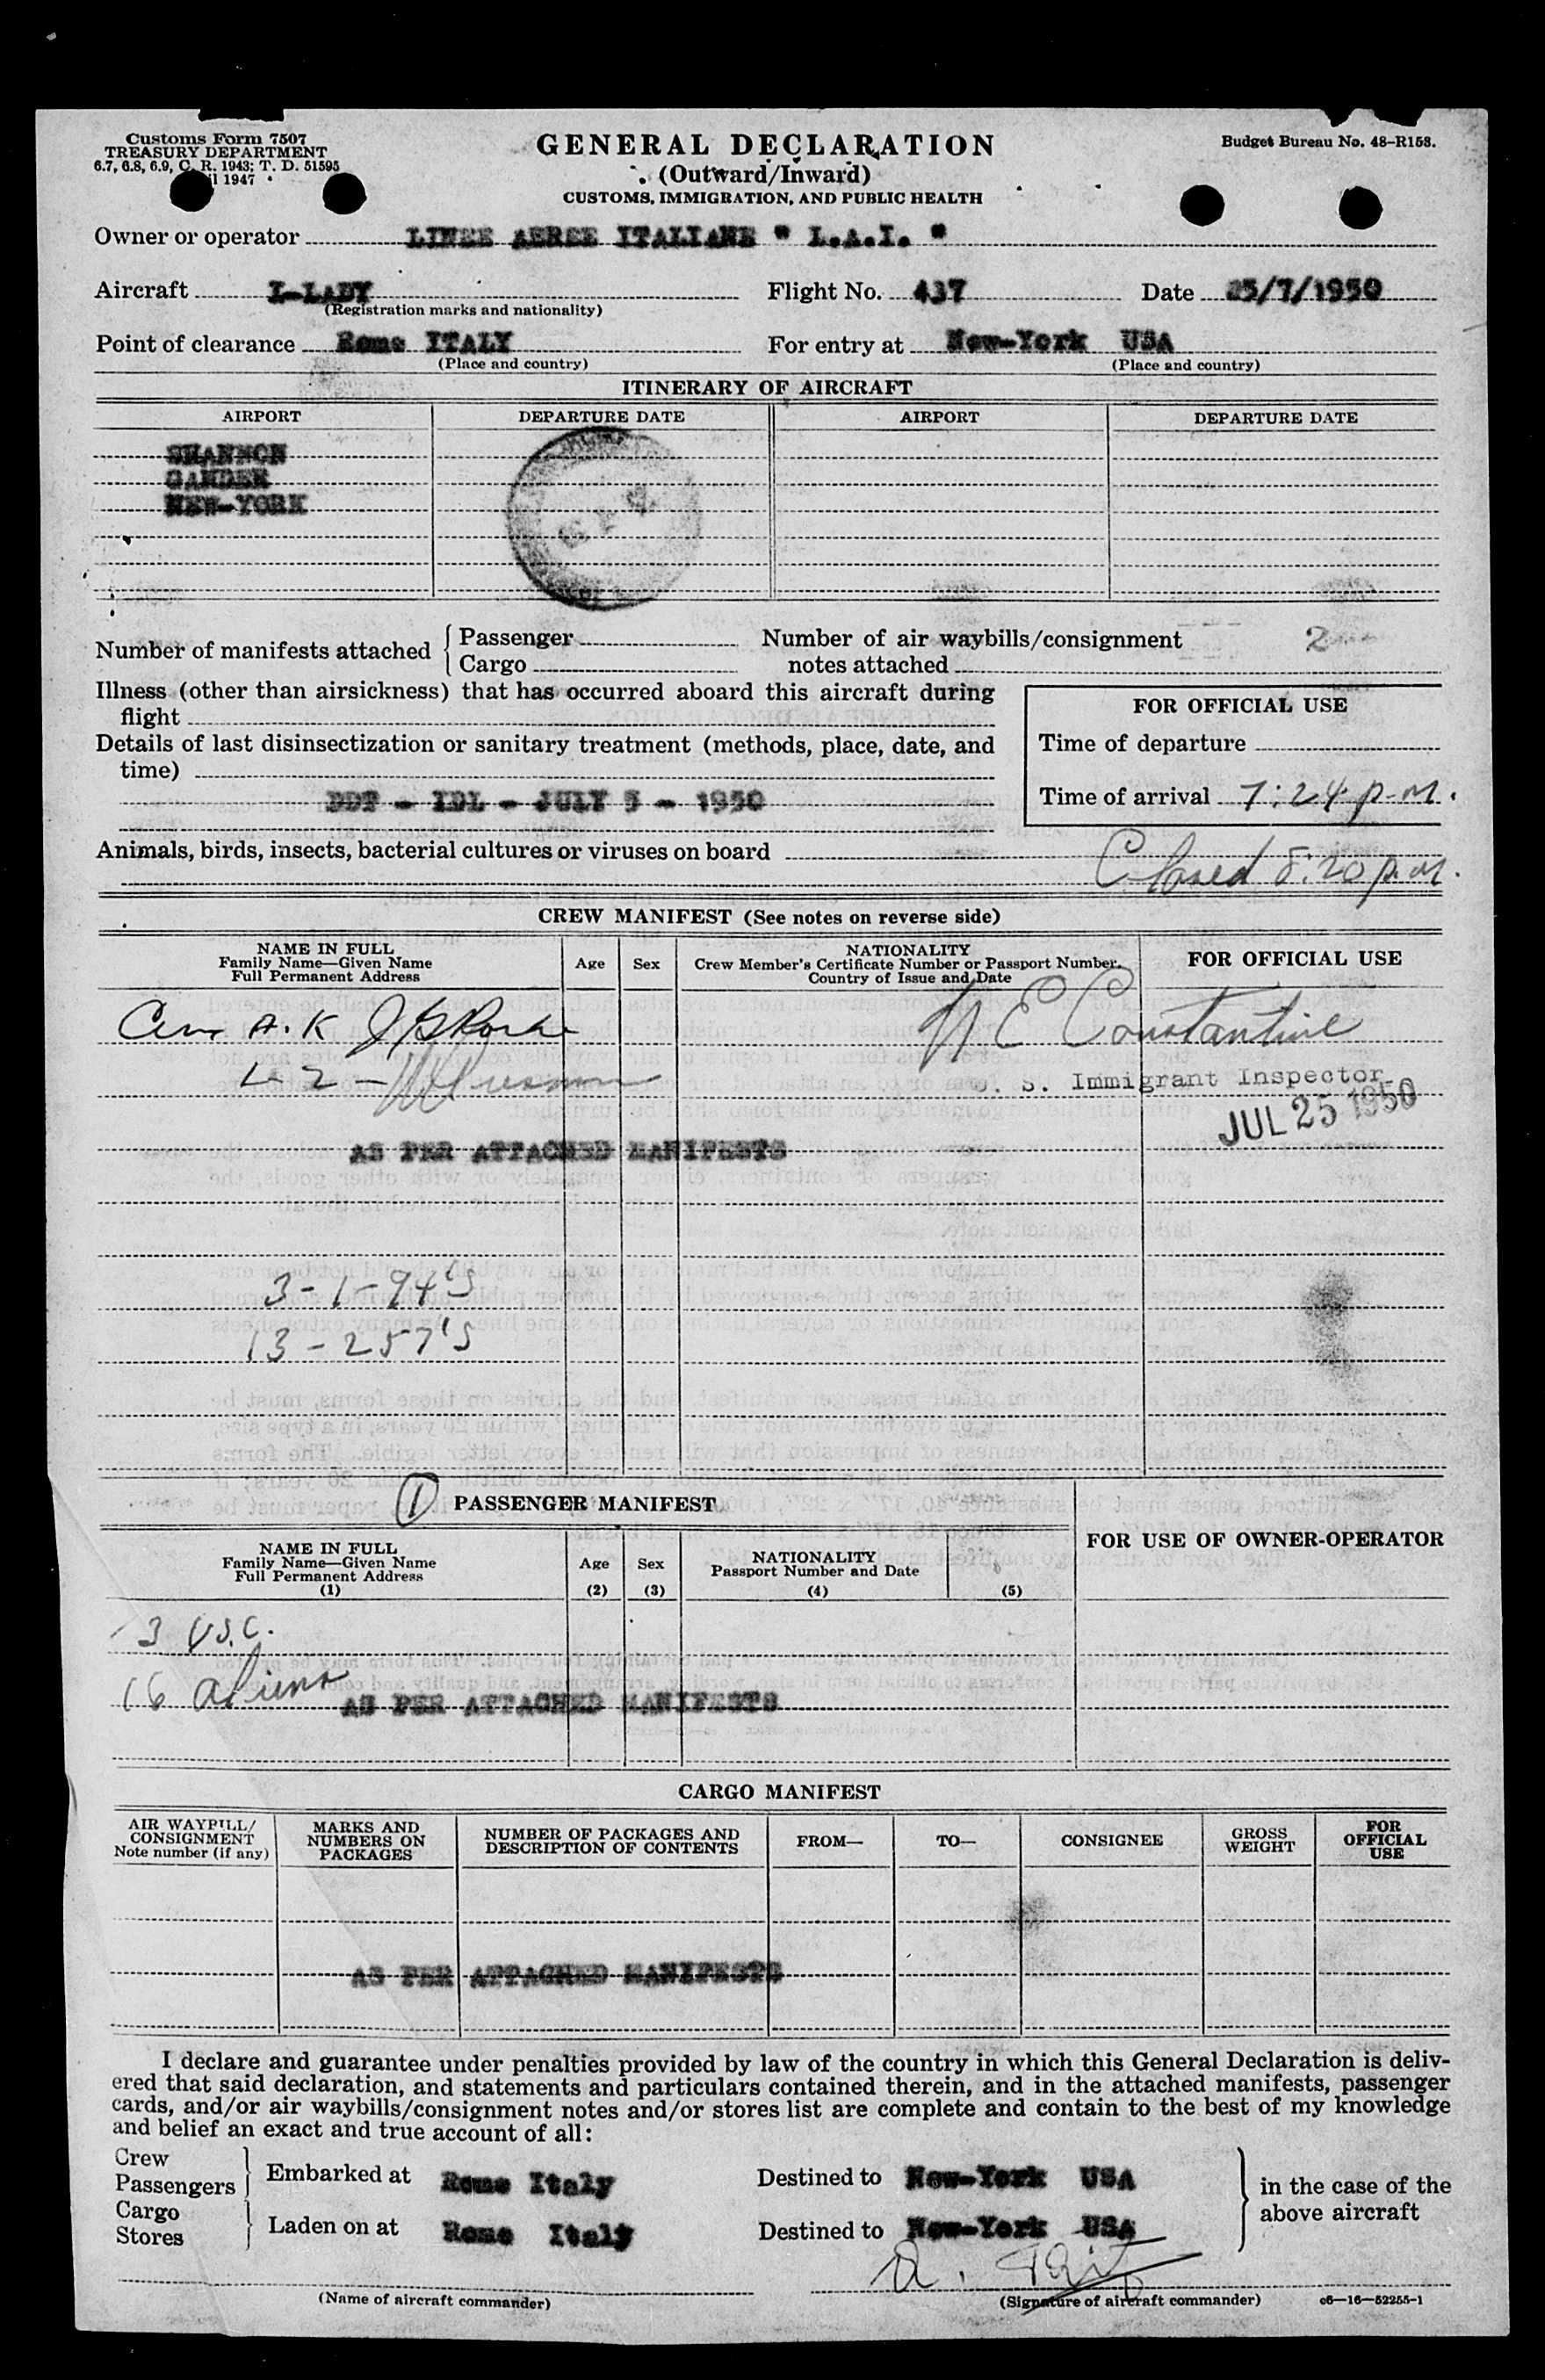 Customs Form 7507
TREASURY DEPARTMENT
6.7, 6.8, 6.9, C. R. 1943; T. D. 51595
1947
GENERAL DECLARATION
(Outward/Inward)
CUSTOMS, IMMIGRATION, AND PUBLIC HEALTH
Budget Bureau No. 48-R158.
Owner or operator LINEE AEREE ITALIANE " L.A.I. "
Aircraft I-LADY Flight No. 437 Date 25/7/1950
(Registration marks and nationality)
Point of clearance Rome ITALY For entry at New-York USA
(Place and country) (Place and country)
ITINERARY OF AIRCRAFT
AIRPORT DEPARTURE DATE AIRPORT DEPARTURE DATE
SHANNON
GANDER
NEW-YORK
Number of manifests attached { Passenger Number of air waybills/consignment 2
Cargo notes attached
Illness (other than airsickness) that has occurred aboard this aircraft during
flight
FOR OFFICIAL USE
Details of last disinsectization or sanitary treatment (methods, place, date, and
time)
Time of departure
DDT - IDL - JULY 5 - 1950
Time of arrival 7:24 p.m.
Animals, birds, insects, bacterial cultures or viruses on board
Closed 8:20 p.m.
CREW MANIFEST (See notes on reverse side)
NAME IN FULL
Family Name—Given Name
Full Permanent Address
Age Sex
NATIONALITY
Crew Member's Certificate Number or Passport Number.
Country of Issue and Date
FOR OFFICIAL USE
A. K
N E Constantine
L-2-
U. S. Immigrant Inspector
JUL 25 1950
AS PER ATTACHED MANIFESTS
3-1-94's
13-257's
1 PASSENGER MANIFEST
FOR USE OF OWNER-OPERATOR
NAME IN FULL
Family Name—Given Name
Full Permanent Address
(1)
Age
(2)
Sex
(3)
NATIONALITY
Passport Number and Date
(4) (5)
3 USC.
16 aliens
AS PER ATTACHED MANIFESTS
CARGO MANIFEST
AIR WAYBILL/
CONSIGNMENT
Note number (if any)
MARKS AND
NUMBERS ON
PACKAGES
NUMBER OF PACKAGES AND
DESCRIPTION OF CONTENTS
FROM— TO— CONSIGNEE
GROSS
WEIGHT
FOR
OFFICIAL
USE
AS PER ATTACHED MANIFESTS
I declare and guarantee under penalties provided by law of the country in which this General Declaration is deliv-
ered that said declaration, and statements and particulars contained therein, and in the attached manifests, passenger
cards, and/or air waybills/consignment notes and/or stores list are complete and contain to the best of my knowledge
and belief an exact and true account of all:
Crew
Passengers } Embarked at Rome Italy Destined to New-York USA
Cargo
Stores } Laden on at Rome Italy Destined to New-York USA
in the case of the
above aircraft
(Name of aircraft commander)
(Signature of aircraft commander)
c6—16—52255-1